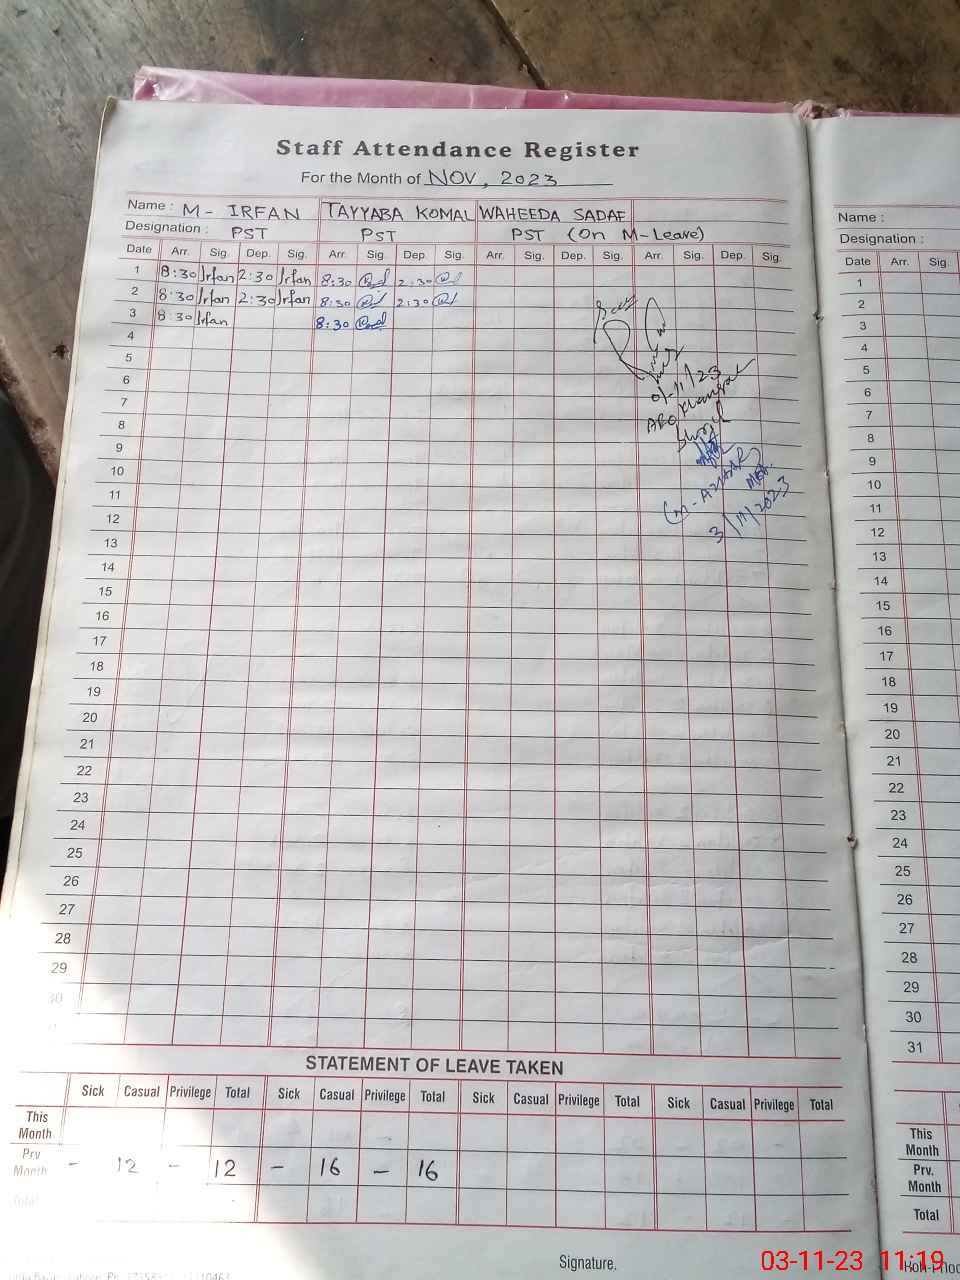 Staff Attendance Register
For the Month of NOV, 2023
Name : M- IRFAN TAYYABA KOMAL WAHEEDA SADAF
Designation : PST PST PST (On M-Leave)
Date Arr. Sig. Dep. Sig. Arr. Sig. Dep. Sig. Arr. Sig. Dep. Sig. Arr. Sig. Dep. Sig.
1 8:30 Irfan 2:30 Irfan 8:30 2:30
2 8:30 Irfan 2:30 Irfan 8:30 2:30
3 8:30 Irfan 8:30
4
5
6
7
8
9
10
11
12
13
14
15
16
17
18
19
20
21
22
23
24
25
26
27
28
29
30
01/11/23
(M-AZHAR)
MEA
3/11/2023
STATEMENT OF LEAVE TAKEN
Sick Casual Privilege Total Sick Casual Privilege Total Sick Casual Privilege Total Sick Casual Privilege Total
This Month
Prv Month - 12 - 12 - 16 - 16
Total
Signature.
Name :
Designation :
Date Arr. Sig.
1
2
3
4
5
6
7
8
9
10
11
12
13
14
15
16
17
18
19
20
21
22
23
24
25
26
27
28
29
30
31
This Month
Prv. Month
Total
03-11-23 11:19